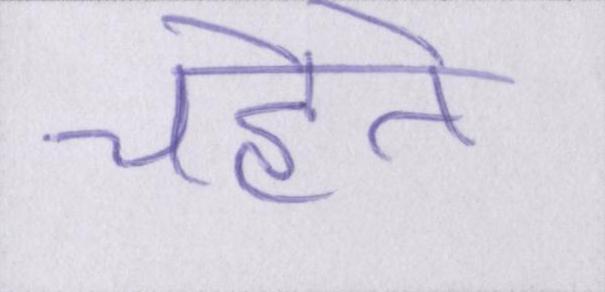 चहेते